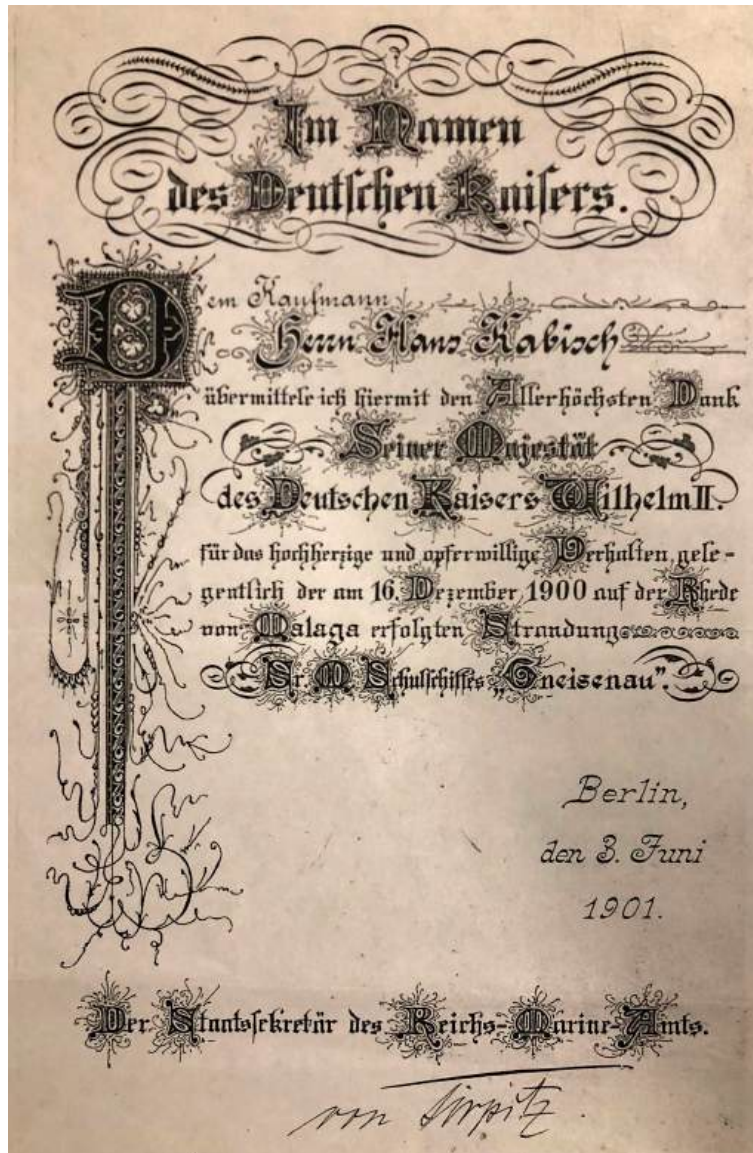 Im Namen
des Deutschen Kaisers.
Dem Kaufmann
Herrn Hans Kabisch
übermittele ich hiermit den Allerhöchsten Dank
Seiner Majestät
des Deutschen Kaisers Wilhelm II.
für das hochherzige und opferwillige Verhalten, gele-
gentlich der am 16. Dezember 1900 auf der Rhede
von Malaga erfolgten Strandung
Sr. M. Schulschiffes „Gneisenau".
Berlin,
den 3. Juni
1901.
Der Staatssekretär des Reichs-Marine-Amts.
von Tirpitz.